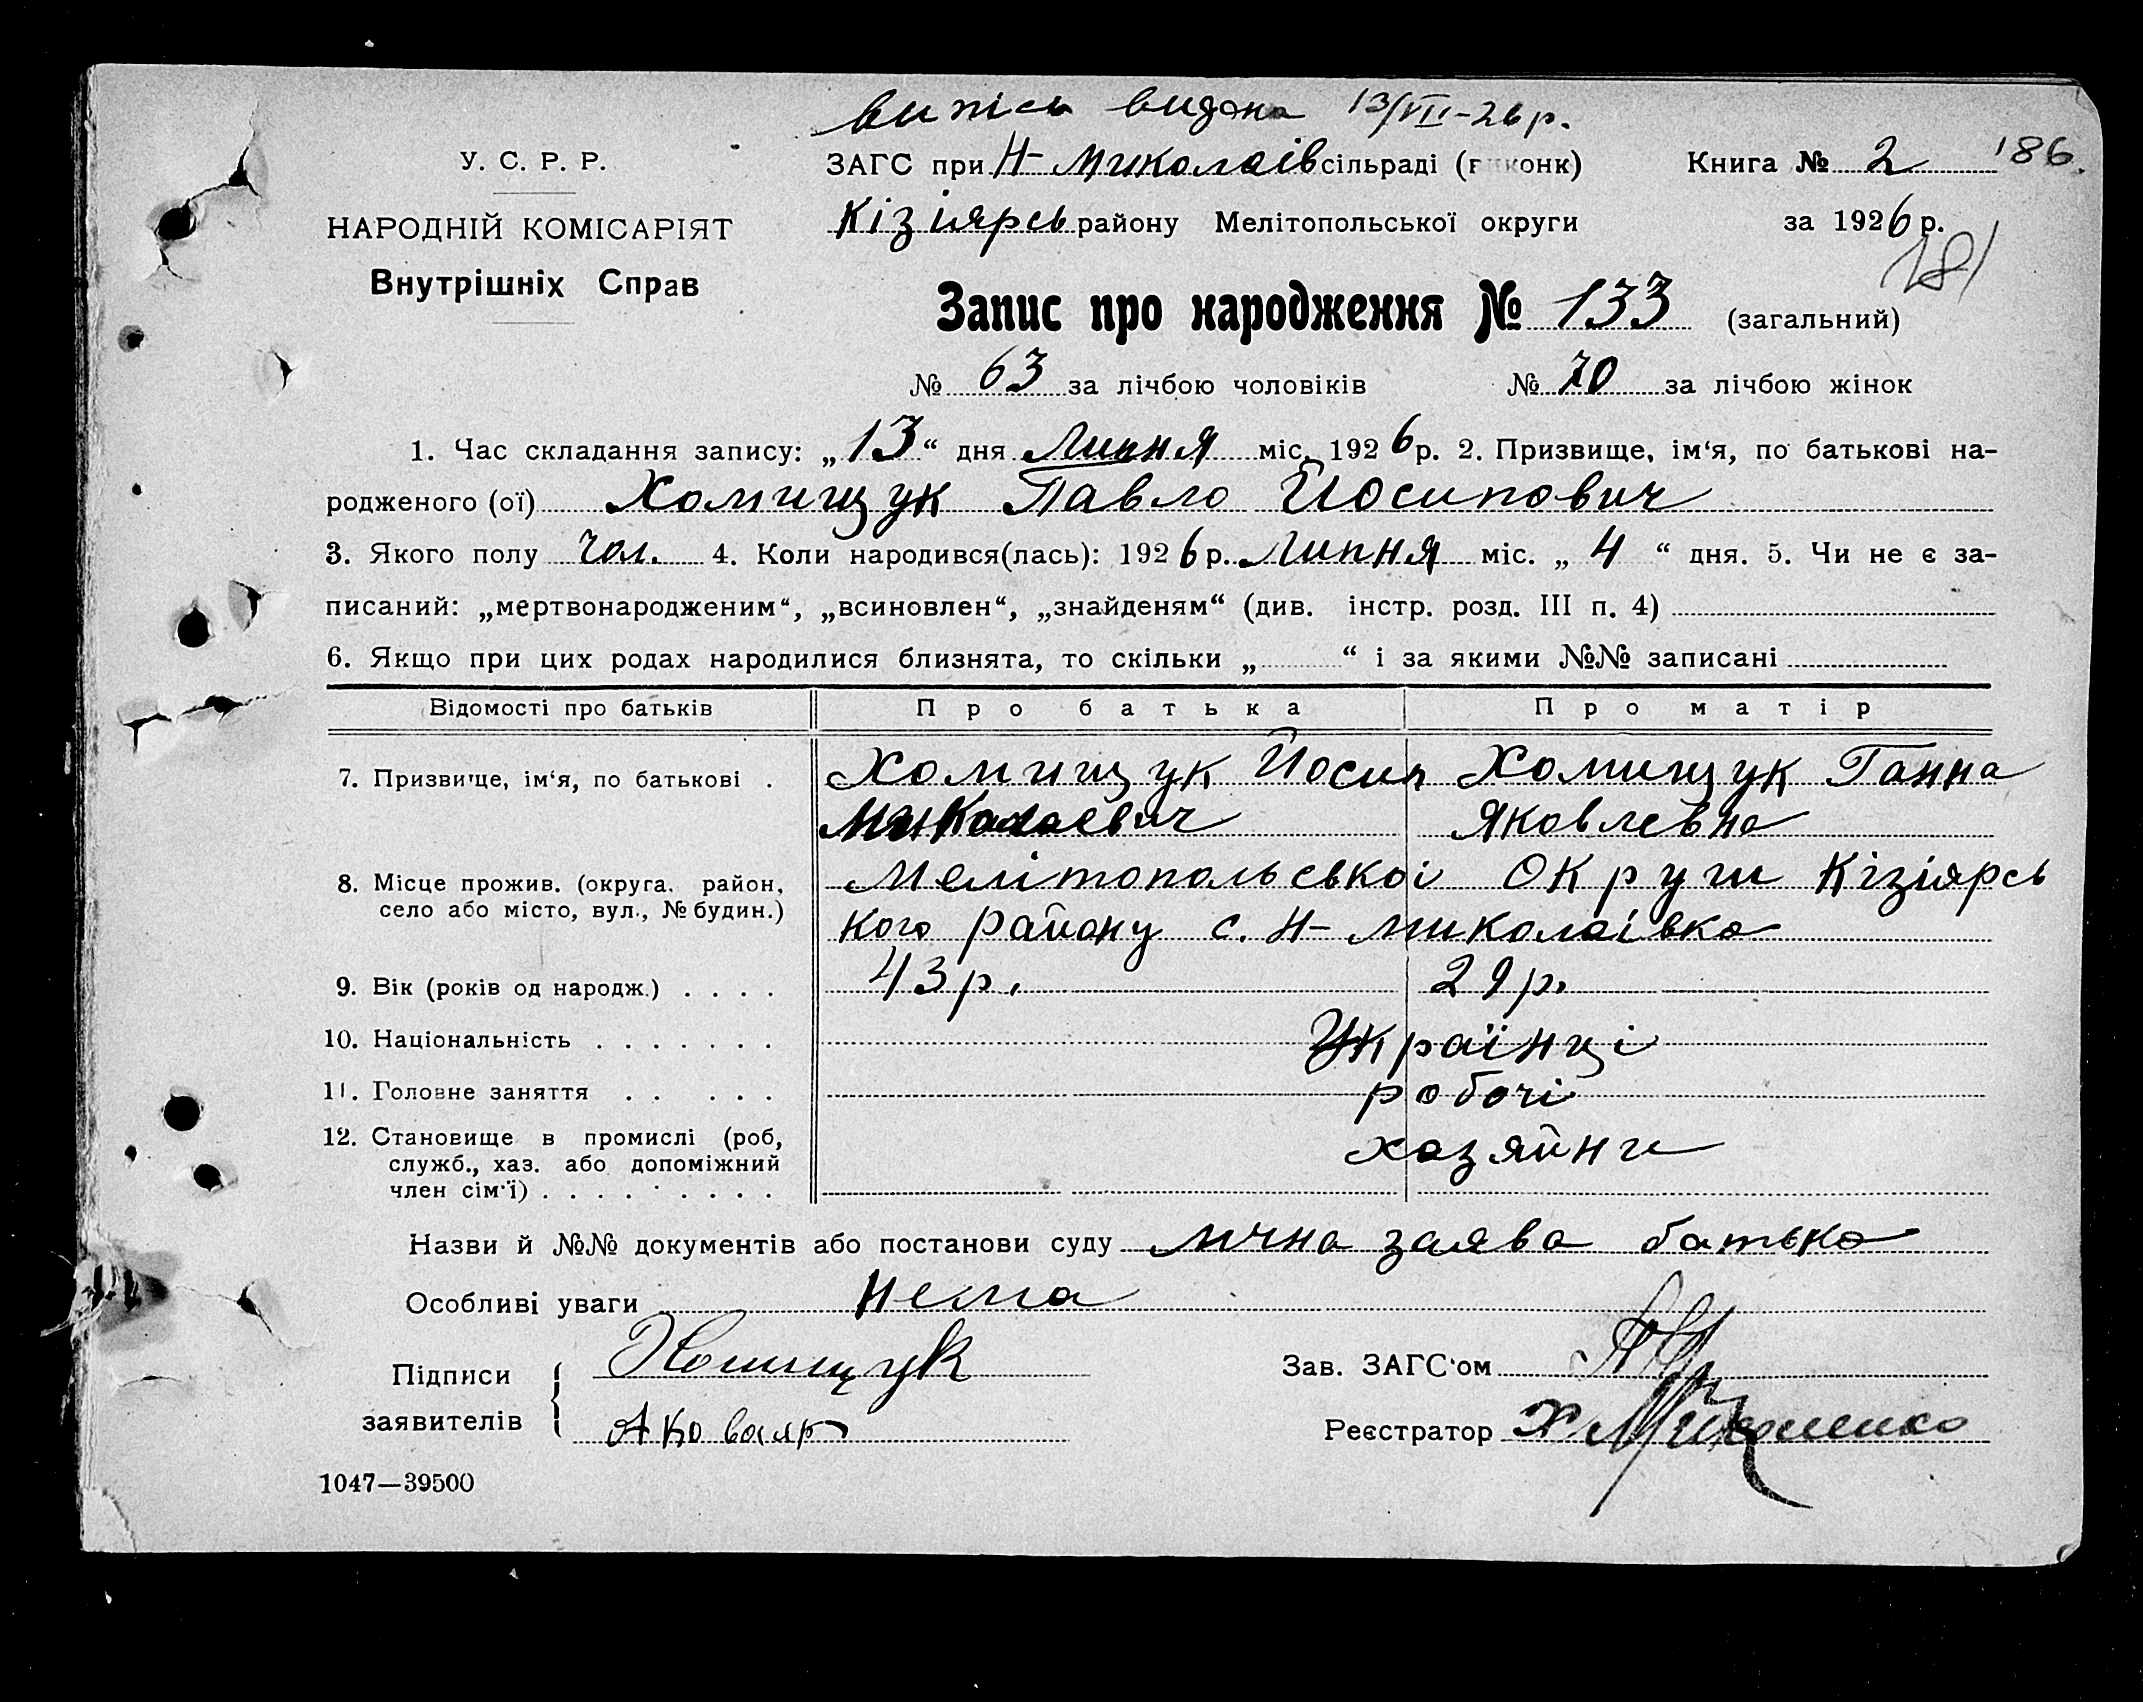 випись видана 13/VII-26 р.
У. С. Р. Р.
ЗАГС при Н-Миколаів сільраді (виконк) Книга № 2 186
НАРОДНІЙ КОМІСАРІЯТ
Кізіярсь району Мелітопольської округи за 1926 р.
181
Внутрішніх Справ
Запис про народження № 133 (загальний)
№ 63 за лічбою чоловіків № 70 за лічбою жінок
1. Час складання запису: „13“ дня Липня міс. 1926 р. 2. Призвище, ім‘я, по батькові на-
родженого (ої) Хомищук Павло Йосипович
3. Якого полу чол. 4. Коли народився(лась): 1926 р. Липня міс. „4“ дня. 5. Чи не є за-
писаний: „мертвонародженим“, „всиновлен“, „знайденям“ (див. інстр. розд. III п. 4)
6. Якщо при цих родах народилися близнята, то скільки „ “ і за якими №№ записані
Відомості про батьків Про батька Про матір
7. Призвище, ім‘я, по батькові . Хомищук Йосип Хомищук Ганна
Миколаевич Яковлевна
8. Місце прожив. (округа. район, Мелітопольськоі Округи Кізіярсь
село або місто, вул., № будин.) кого району с. Н-Миколаівка
9. Вік (років од народж.) . . . . 43 р. 29 р.
10. Національність . . . . . . . Українці
11. Головне заняття . . . . . робочі
12. Становище в промислі (роб, хазяйни
служб., хаз. або допоміжний
член сім‘ї) . . . . . . . . .
Назви й №№ документів або постанови суду лична заява батька
Особливі уваги Нема
Підписи Хомищук Зав. ЗАГС‘ом
заявителів Реєстратор
1047—39500